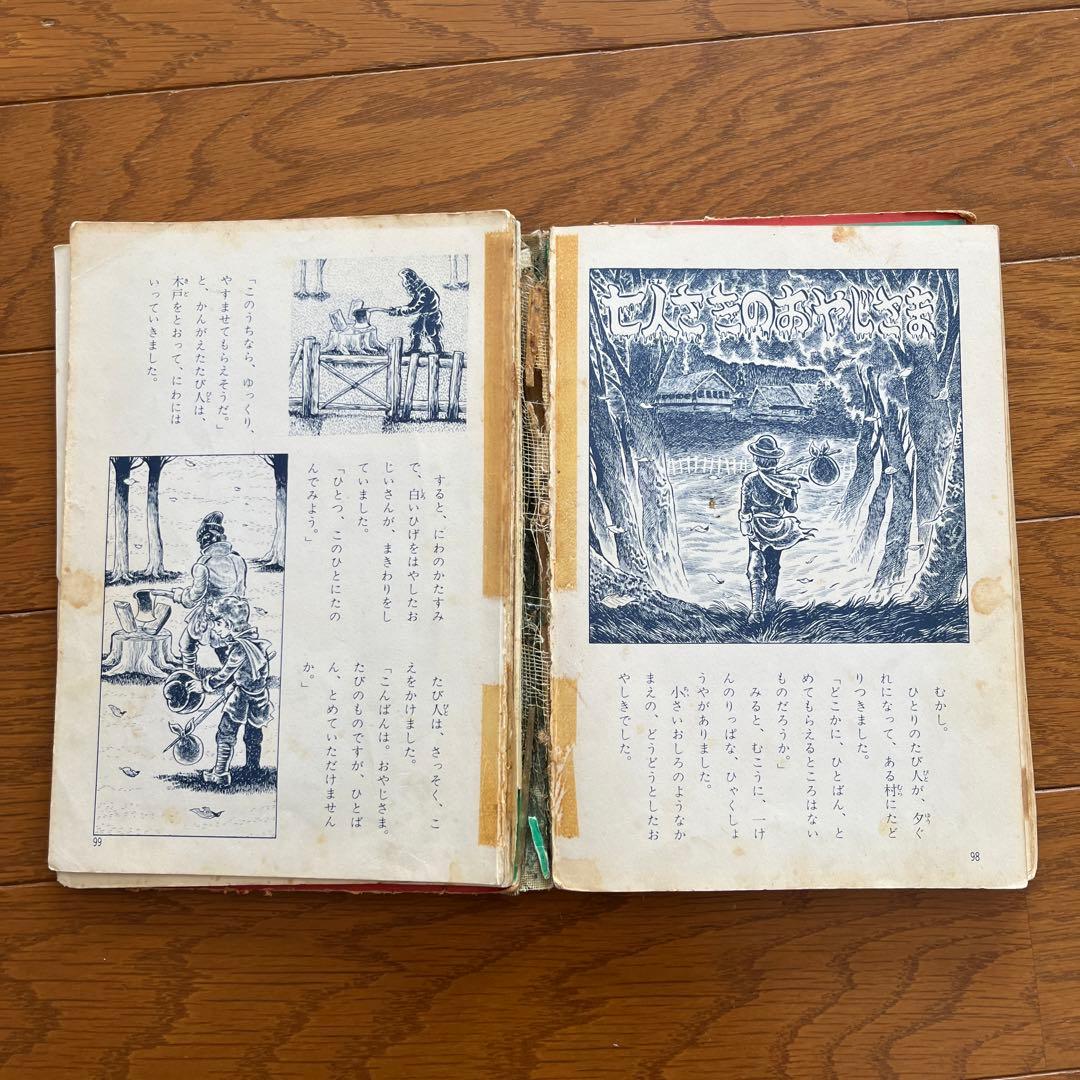 七人さきのおやじさま
むかし。
ひとりのたび人が、夕ぐ
れになって、ある村にたど
りつきました。
「どこかに、ひとばん、と
めてもらえるところはない
ものだろうか。」
みると、むこうに、一け
んのりっぱな、ひゃくしょ
うやがありました。
小さいおしろのようなか
まえの、どうどうとしたお
やしきでした。
98
「このうちなら、ゆっくり、
やすませてもらえそうだ。」
と、かんがえたたび人は、
木戸をとおって、にわには
いっていきました。
すると、にわのかたすみ
で、白いひげをはやしたお
じいさんが、まきわりをし
ていました。
「ひとつ、このひとにたの
んでみよう。」
たび人は、さっそく、こ
えをかけました。
「こんばんは。おやじさま。
たびのものですが、ひとば
ん、とめていただけません
か。」
99